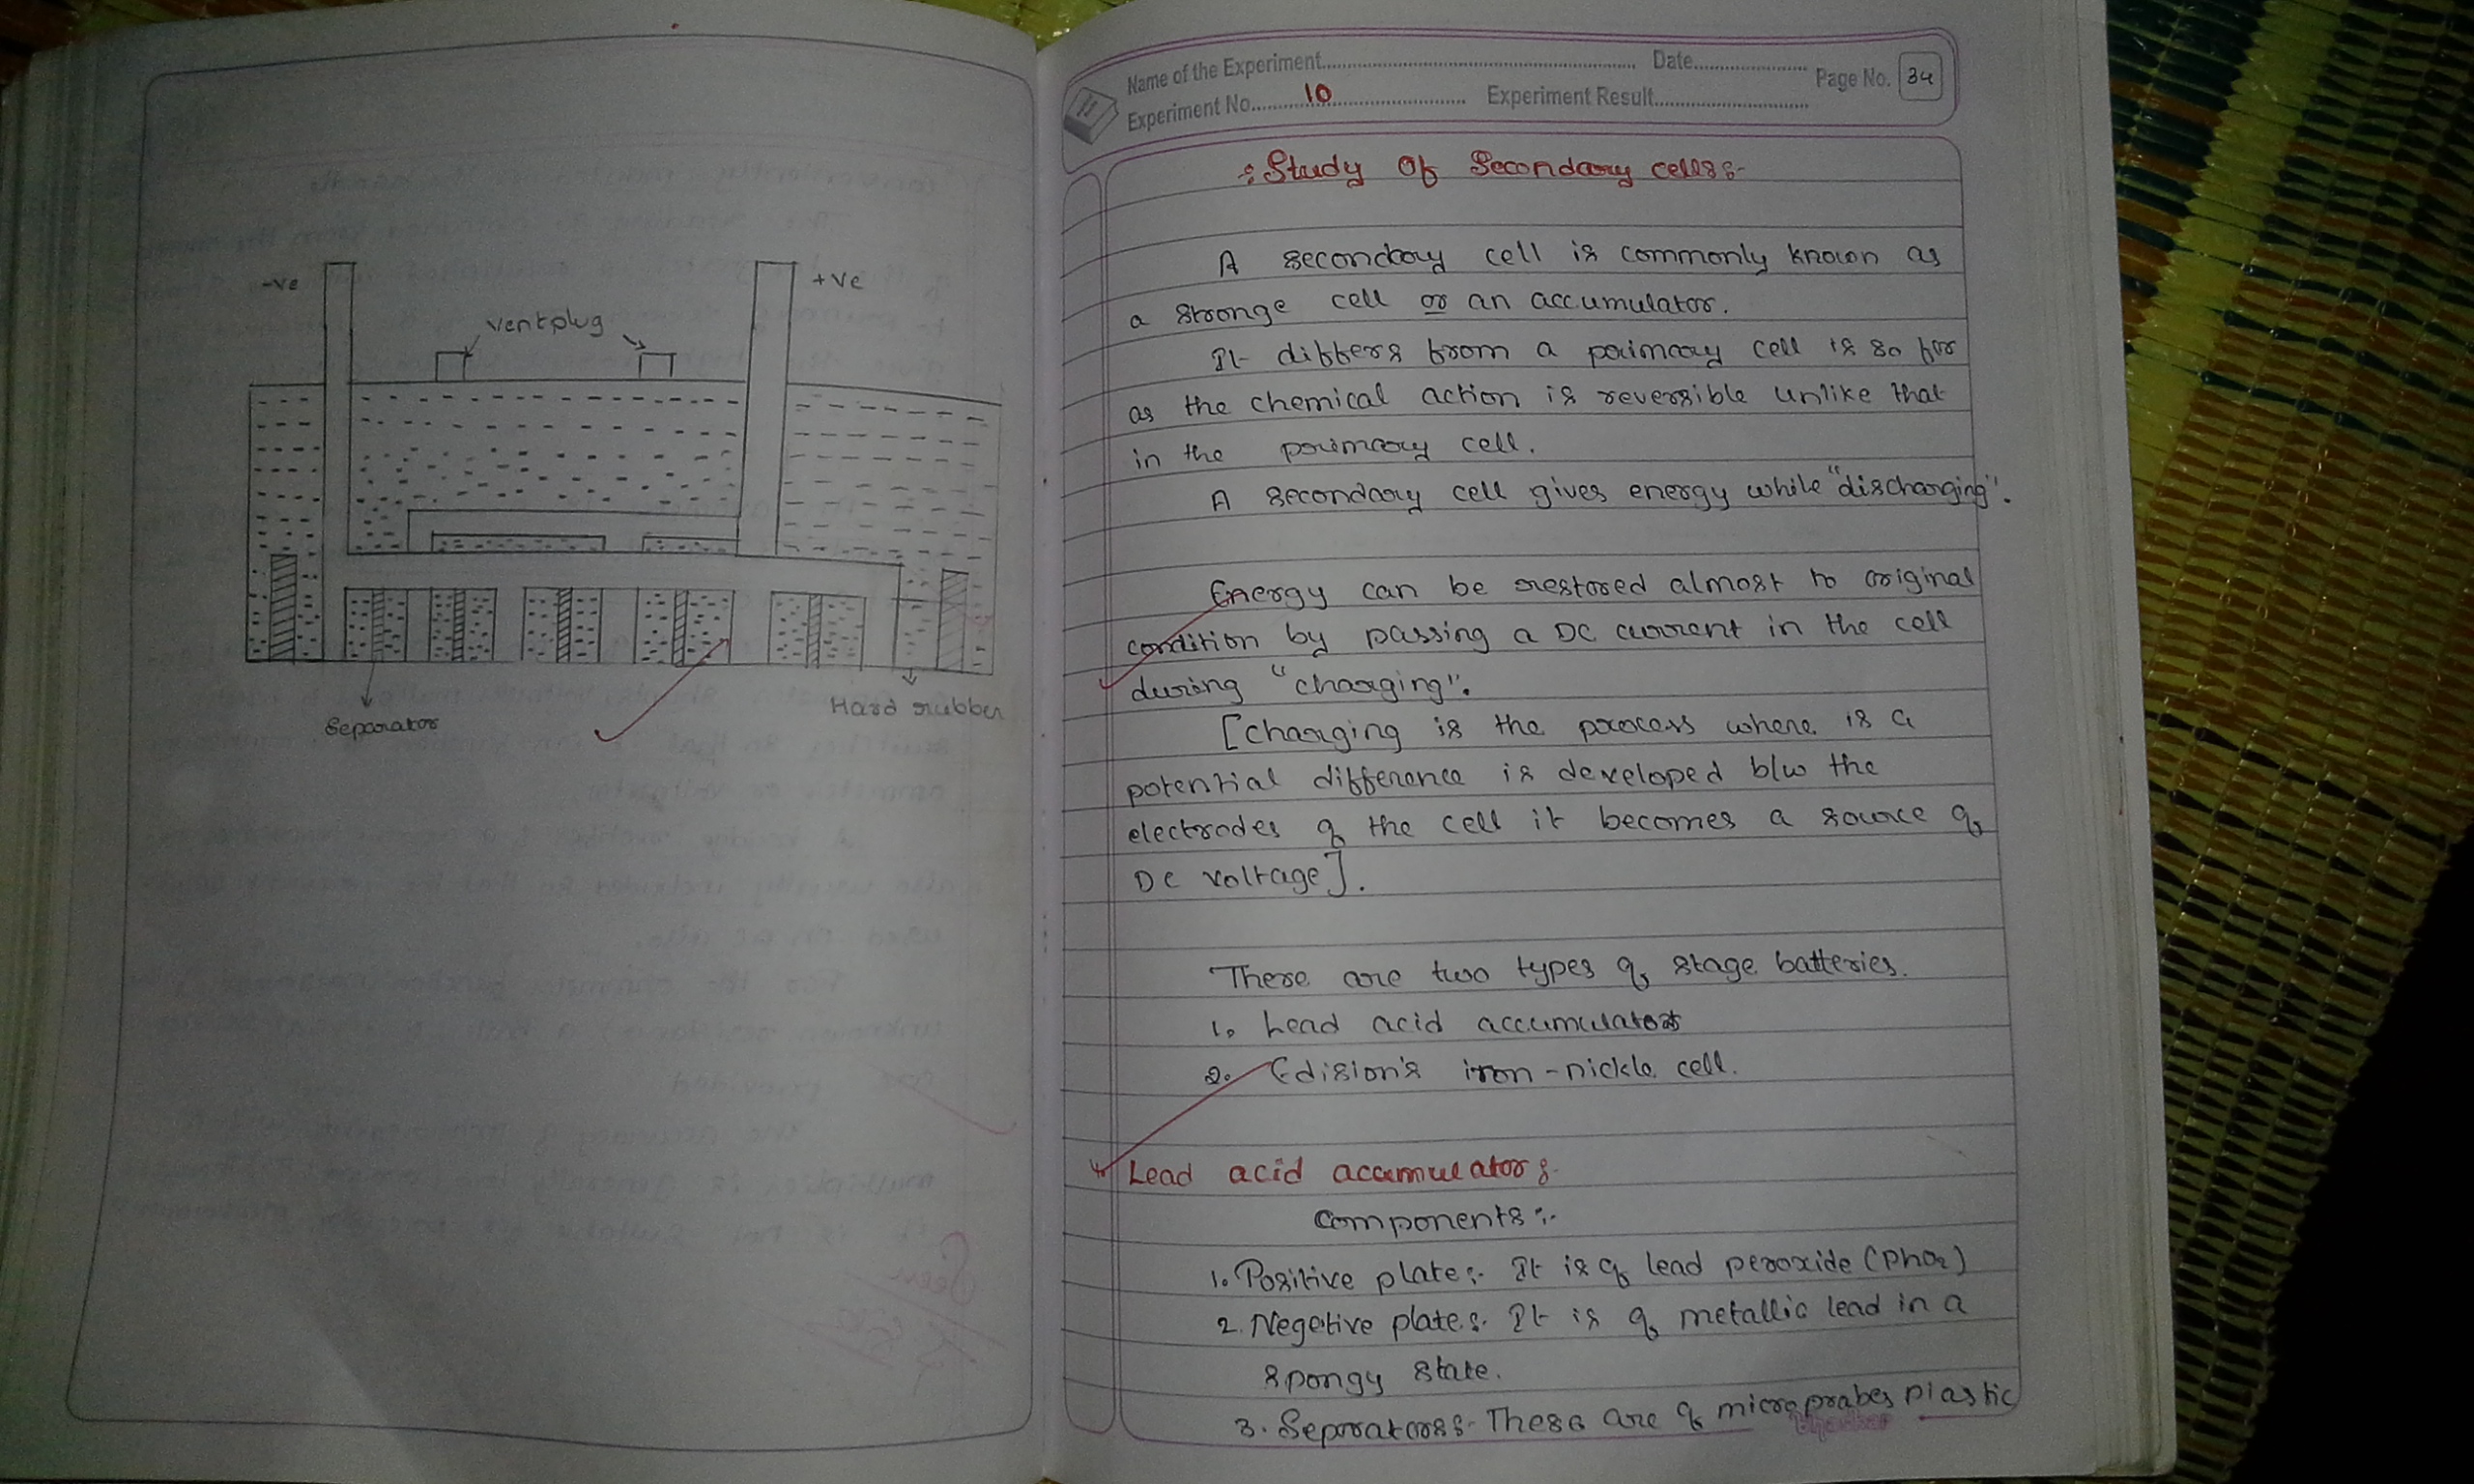 -ve
+ve
ventplug
Separator
Hard rubber
Name of the Experiment
Date
Page No. 34
Experiment No. 10
Experiment Result
:Study Of Secondary cells:-
A secondary cell is commonly known as
a stronge cell or an accumulator.
It differs from a primary cell is so for
as the chemical action is reversible unlike that
in the primary cell.
A secondary cell gives energy while "discharging".
Energy can be restored almost to original
condition by passing a DC current in the cell
during "charging".
[charging is the process where is a
potential difference is developed b/w the
electrodes of the cell it becomes a source of
DC voltage].
There are two types of stage batteries.
1. Lead acid accumulator
2. Edision's iron-nickle cell.
Lead acid accumulator:-
Components:-
1. Positive plate:- It is of lead peroxide (PhO2)
2. Negetive plate:- It is of metallic lead in a
spongy state.
3. Seprators:- These are of microprabes plastic